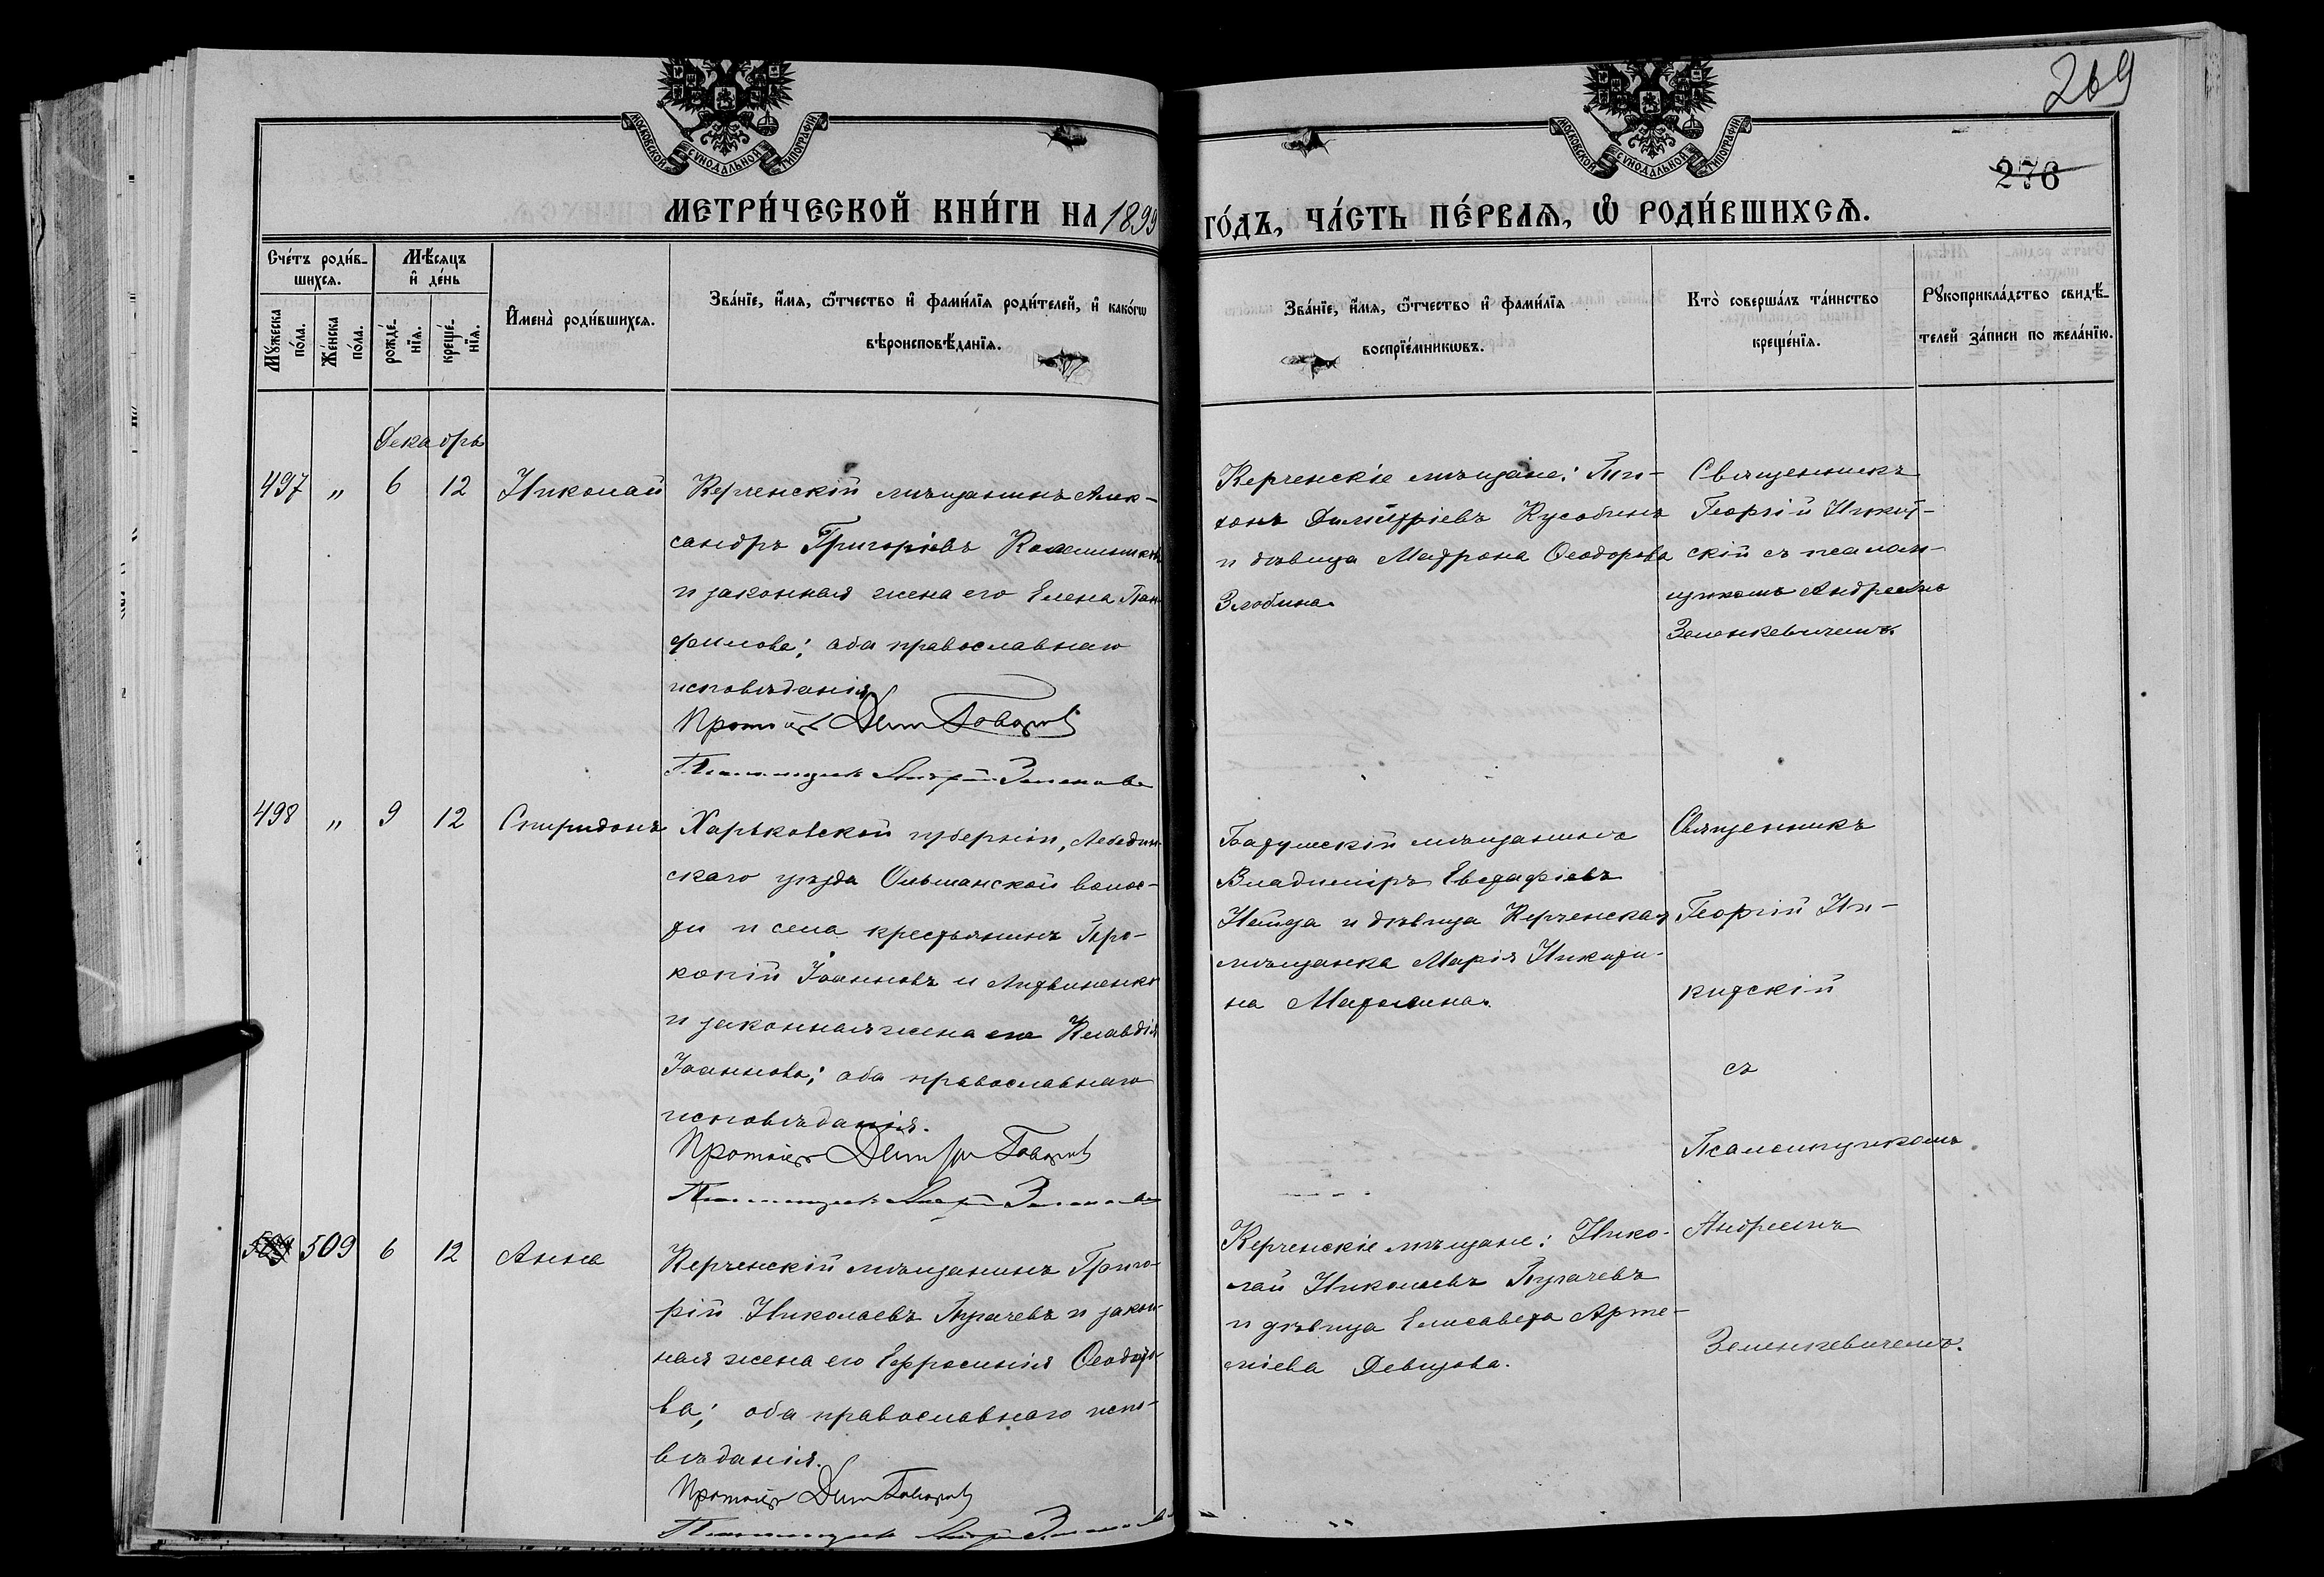 269
276
МОСКОВСКОЙ СѴНОДАЛЬНОЙ ТИПОГРАФІИ
МОСКОВСКОЙ СѴНОДАЛЬНОЙ ТИПОГРАФІИ
МЕТРИ́ЧЕСКОЙ КНИ́ГИ НА 1899 ГО́ДЪ, ЧА́СТЬ ПЕ́РВАЯ, Ѡ РОДИ́ВШИХСЯ.
Сче́тъ роди́в-
шихся.
Мꙋ́жеска по́ла.
Же́нска по́ла.
Мѣ́сяцъ
и҆ де́нь
рожде́-
нїя.
креще́-
нїя.
И҆мена̀ роди́вшихся.
Зва́нїе, и҆́мя, ѻ҆́тчество и҆ фами́лїя роди́телей, и҆ како́гѡ
вѣроисповѣ́данїя.
Зва́нїе, и҆́мя, ѻ҆́тчество и҆ фами́лїя
воспрїе́мникѡвъ.
Кто̀ соверша́лъ та́инство
креще́нїя.
Рꙋкоприкла́дство свидѣ́-
телей за́писи по жела́нїю.
Декабрь
497 " 6 12 Николай
Керченскій мѣщанинъ Алек-
сандръ Григоріевъ
и законная жена его Елена Пан-
филова; оба православнаго
исповѣданія
Протоіер Дим Говоров
Псаломщикъ Андрей
Керченскіе мѣщане:
Димитріевъ
и дѣвица Матрона Ѳеодорова
Злобина.
Священникъ
Георгій Никит-
скій съ псалом-
щикомъ Андреемъ
Зеленкевичемъ.
498 " 9 12 Спиридонъ
Харьковской губерніи, Лебедин-
скаго уѣзда Ольшанской волос-
ти и села крестьянинъ Про-
копій Іоанновъ Литвиненко
и законная жена его Клавдія
Іоаннова; оба православнаго
исповѣданія.
Протоіер Димитри Говоров
Псаломщикъ Андрей
мѣщанинъ
Владиміръ Евстафіевъ
и дѣвица Керченская
мѣщанка Марія Никити-
на
Священникъ
Георгій Ни-
китскій
съ
Псаломщикомъ
Андреемъ
Зеленкевичемъ.
509 6 12 Анна
Керченскій мѣщанинъ Григо-
рій Николаевъ Пугачевъ и закон-
ная жена его Евфросинія Ѳеодоро-
ва; оба православнаго испо-
вѣданія.
Протоіер Дим Говоров
Псаломщикъ Андрей
Керченскіе мѣщане: Нико-
лай Николаевъ Пугачевъ
и дѣвица Елисавета Арте-
міева Девцова.